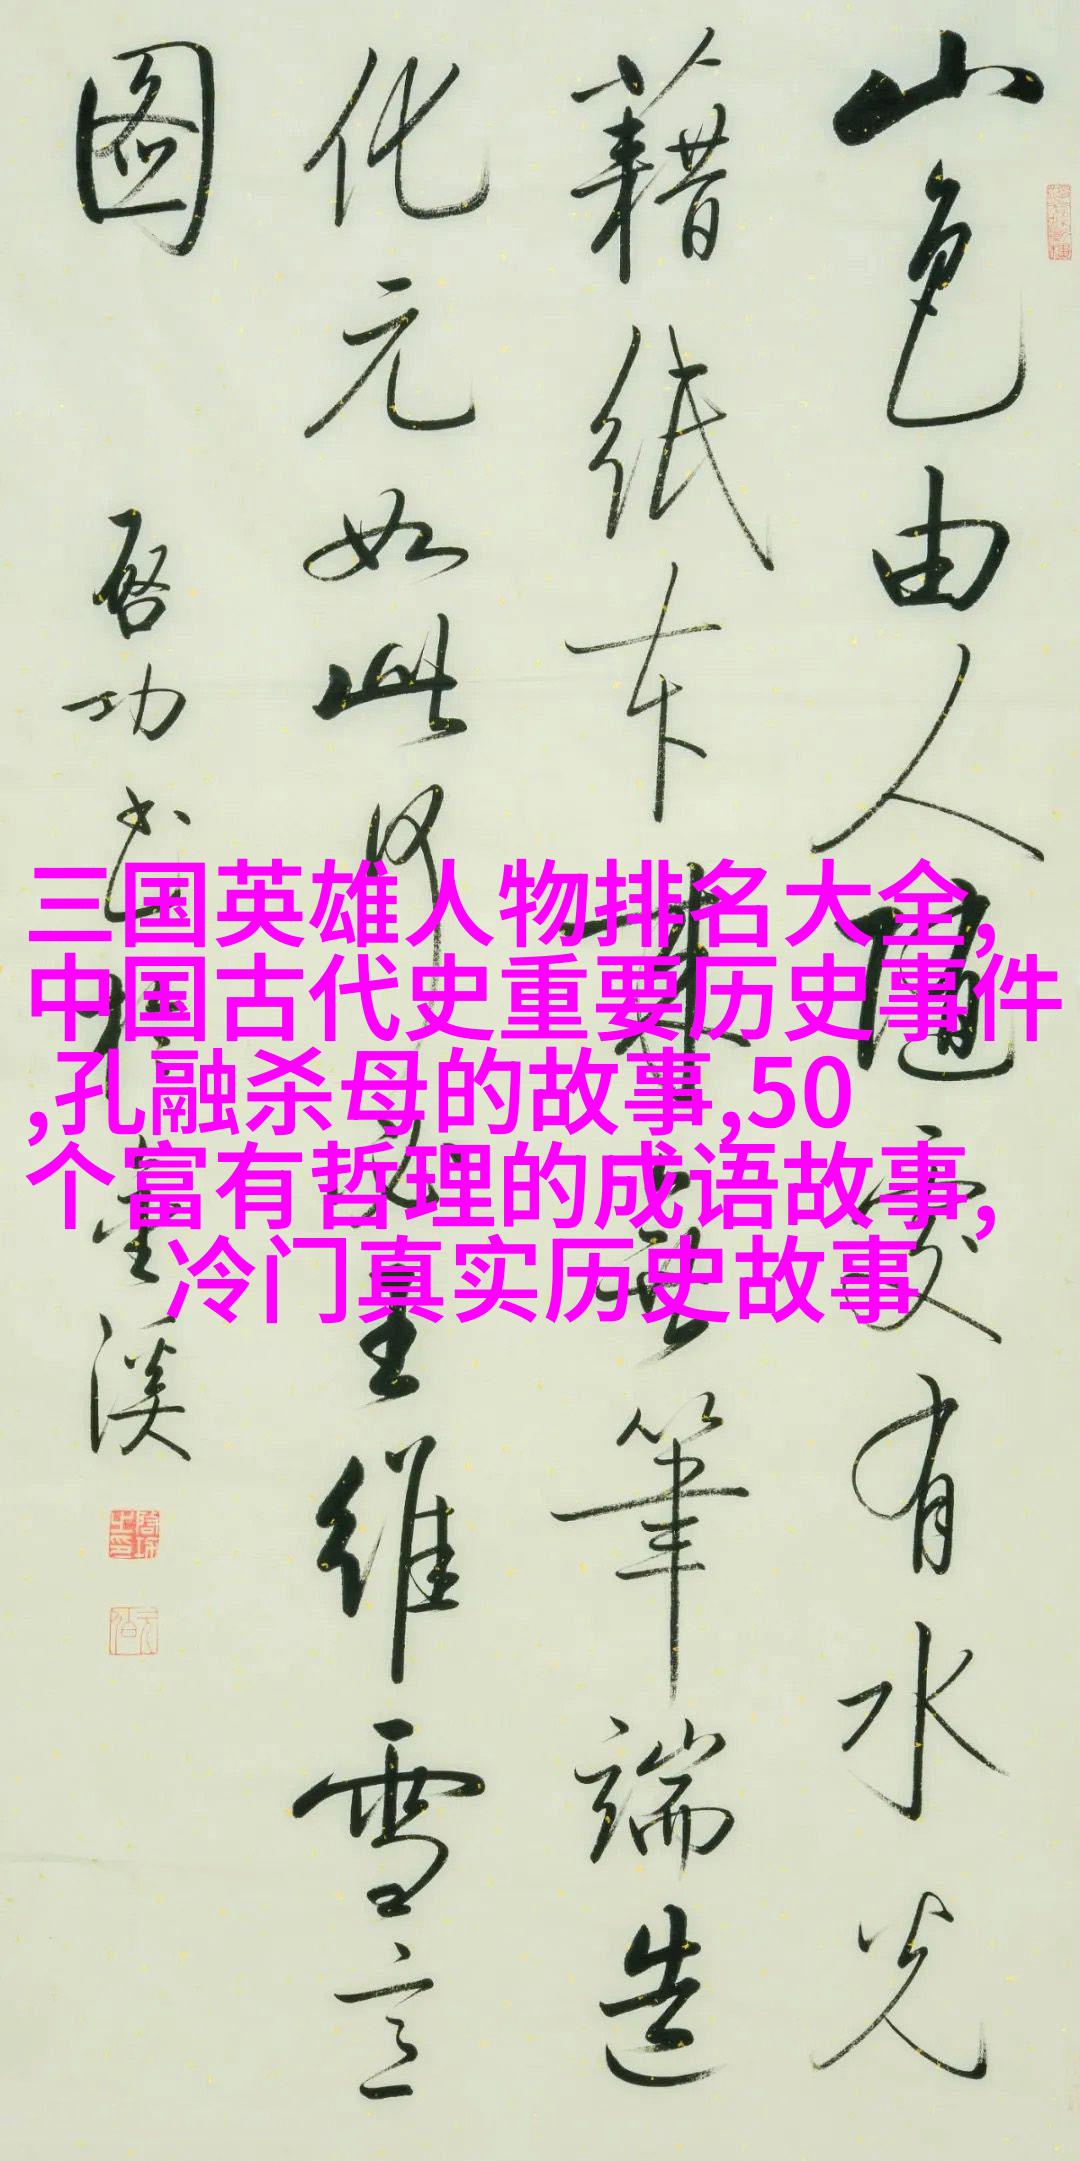 山色由人隨處有水光
藉紙本來無筆端造
化元如此何必王維雪
圖
啟功书
溪
三国英雄人物排名大全,
中国古代史重要历史事件
,孔融杀母的故事,50
个富有哲理的成语故事,
冷门真实历史故事